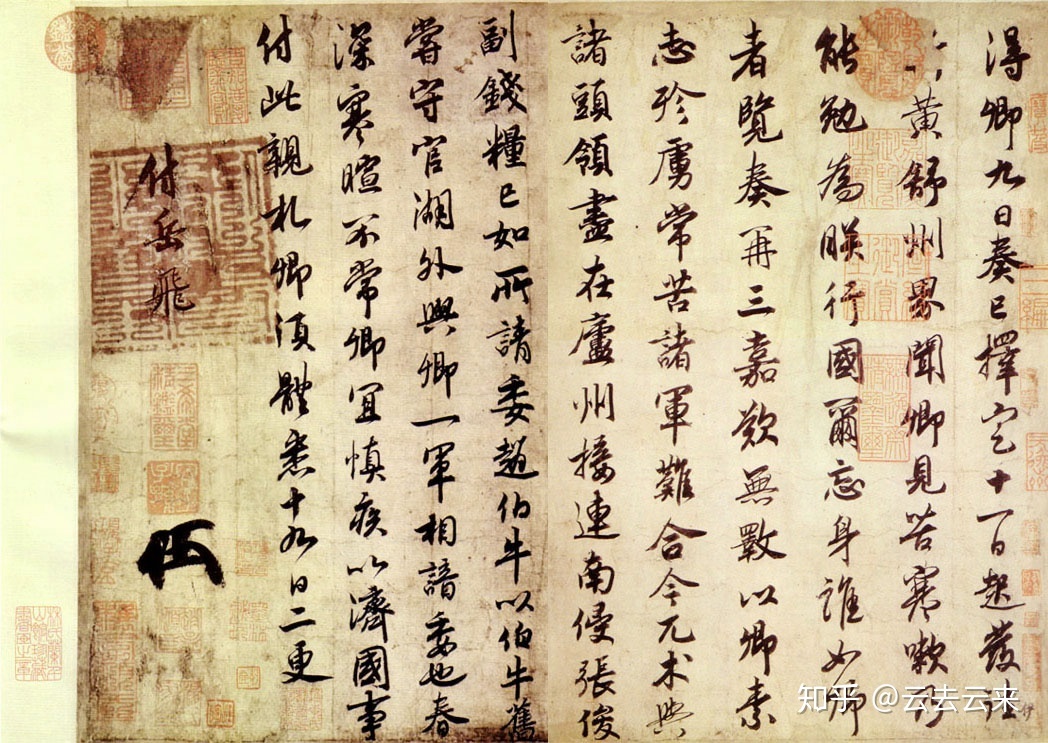 得卿九日奏已擇定十一日起發往
黃舒州界聞卿見苦寒嗽乃
能勉為朕行國爾忘身誰如卿
者覽奏再三嘉歎無斁以卿素
志殄虜常苦諸軍難合今兀朮與
諸頭領盡在廬州接連南侵張俊
副錢糧已如所請委趙伯牛以伯牛舊
嘗守官湖外與卿一軍相諳委也春
深寒暄不常卿宜慎疾以濟國事
付此親札卿須體悉十九日二更
付岳飛
知乎 @云去云来